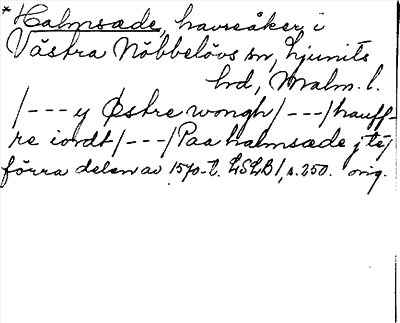 * Halmsæde, havreåker i
Västra Nöbbelövs sn, Ljunits
hd, Malm. l.
/---y Østre wongh/---/hauff-
re iordt/---/Paa halmsæde j tej
förra delen av 1570-t. LSLB 1, s. 250. orig.